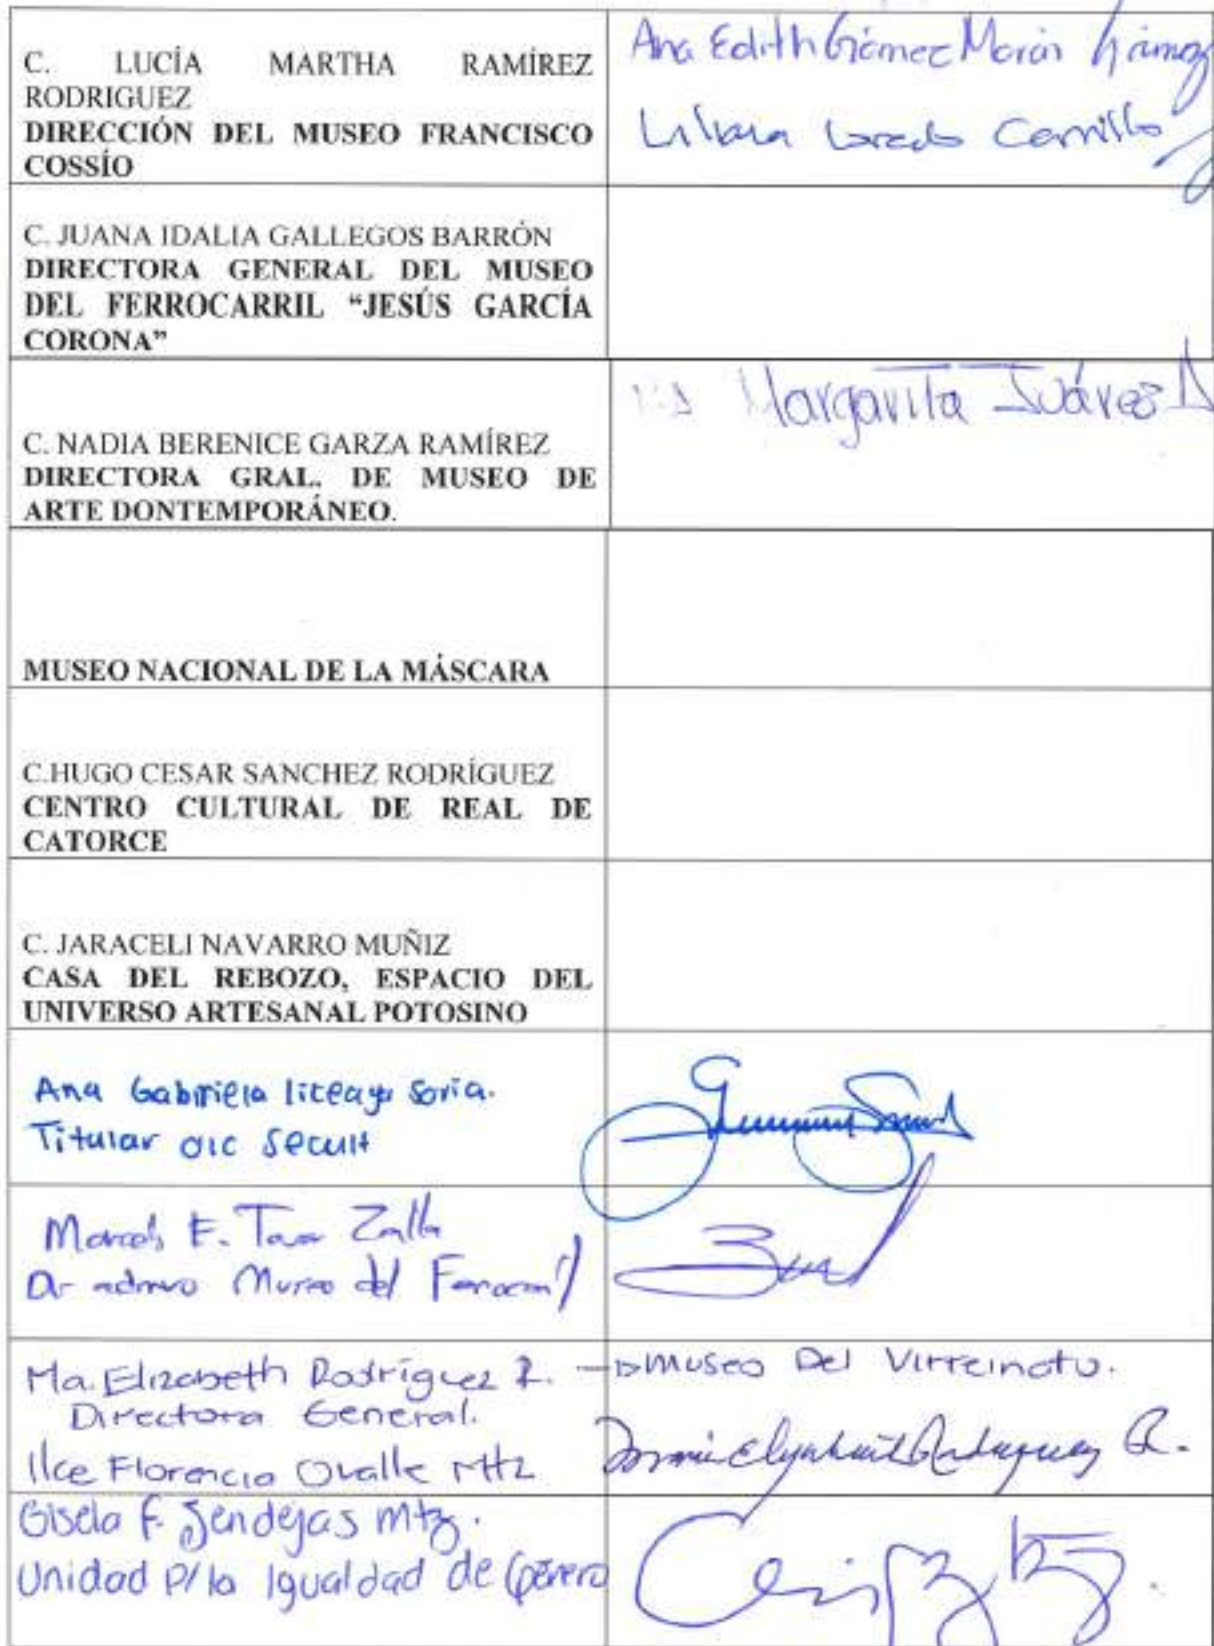 C. LUCÍA MARTHA RAMÍREZ
RODRIGUEZ
DIRECCIÓN DEL MUSEO FRANCISCO
COSSÍO
Ana Edith Gámez Morán
Liliana Loredo Carrillo
C. JUANA IDALIA GALLEGOS BARRÓN
DIRECTORA GENERAL DEL MUSEO
DEL FERROCARRIL “JESÚS GARCÍA
CORONA”
C. NADIA BERENICE GARZA RAMÍREZ
DIRECTORA GRAL. DE MUSEO DE
ARTE DONTEMPORÁNEO.
Margarita Juárez
MUSEO NACIONAL DE LA MÁSCARA
C.HUGO CESAR SANCHEZ RODRÍGUEZ
CENTRO CULTURAL DE REAL DE
CATORCE
C. JARACELI NAVARRO MUÑIZ
CASA DEL REBOZO, ESPACIO DEL
UNIVERSO ARTESANAL POTOSINO
Ana Gabriela liceaga Soria.
Titular OIC Secult
E.
Museo del
Ma. Elizabeth Rodríguez R. → Museo Del Virreinato.
Directora General.
Ilce Florencia Ovalle Mtz
Gisela F. Sendejas Mtz.
Unidad P/la Igualdad de Género